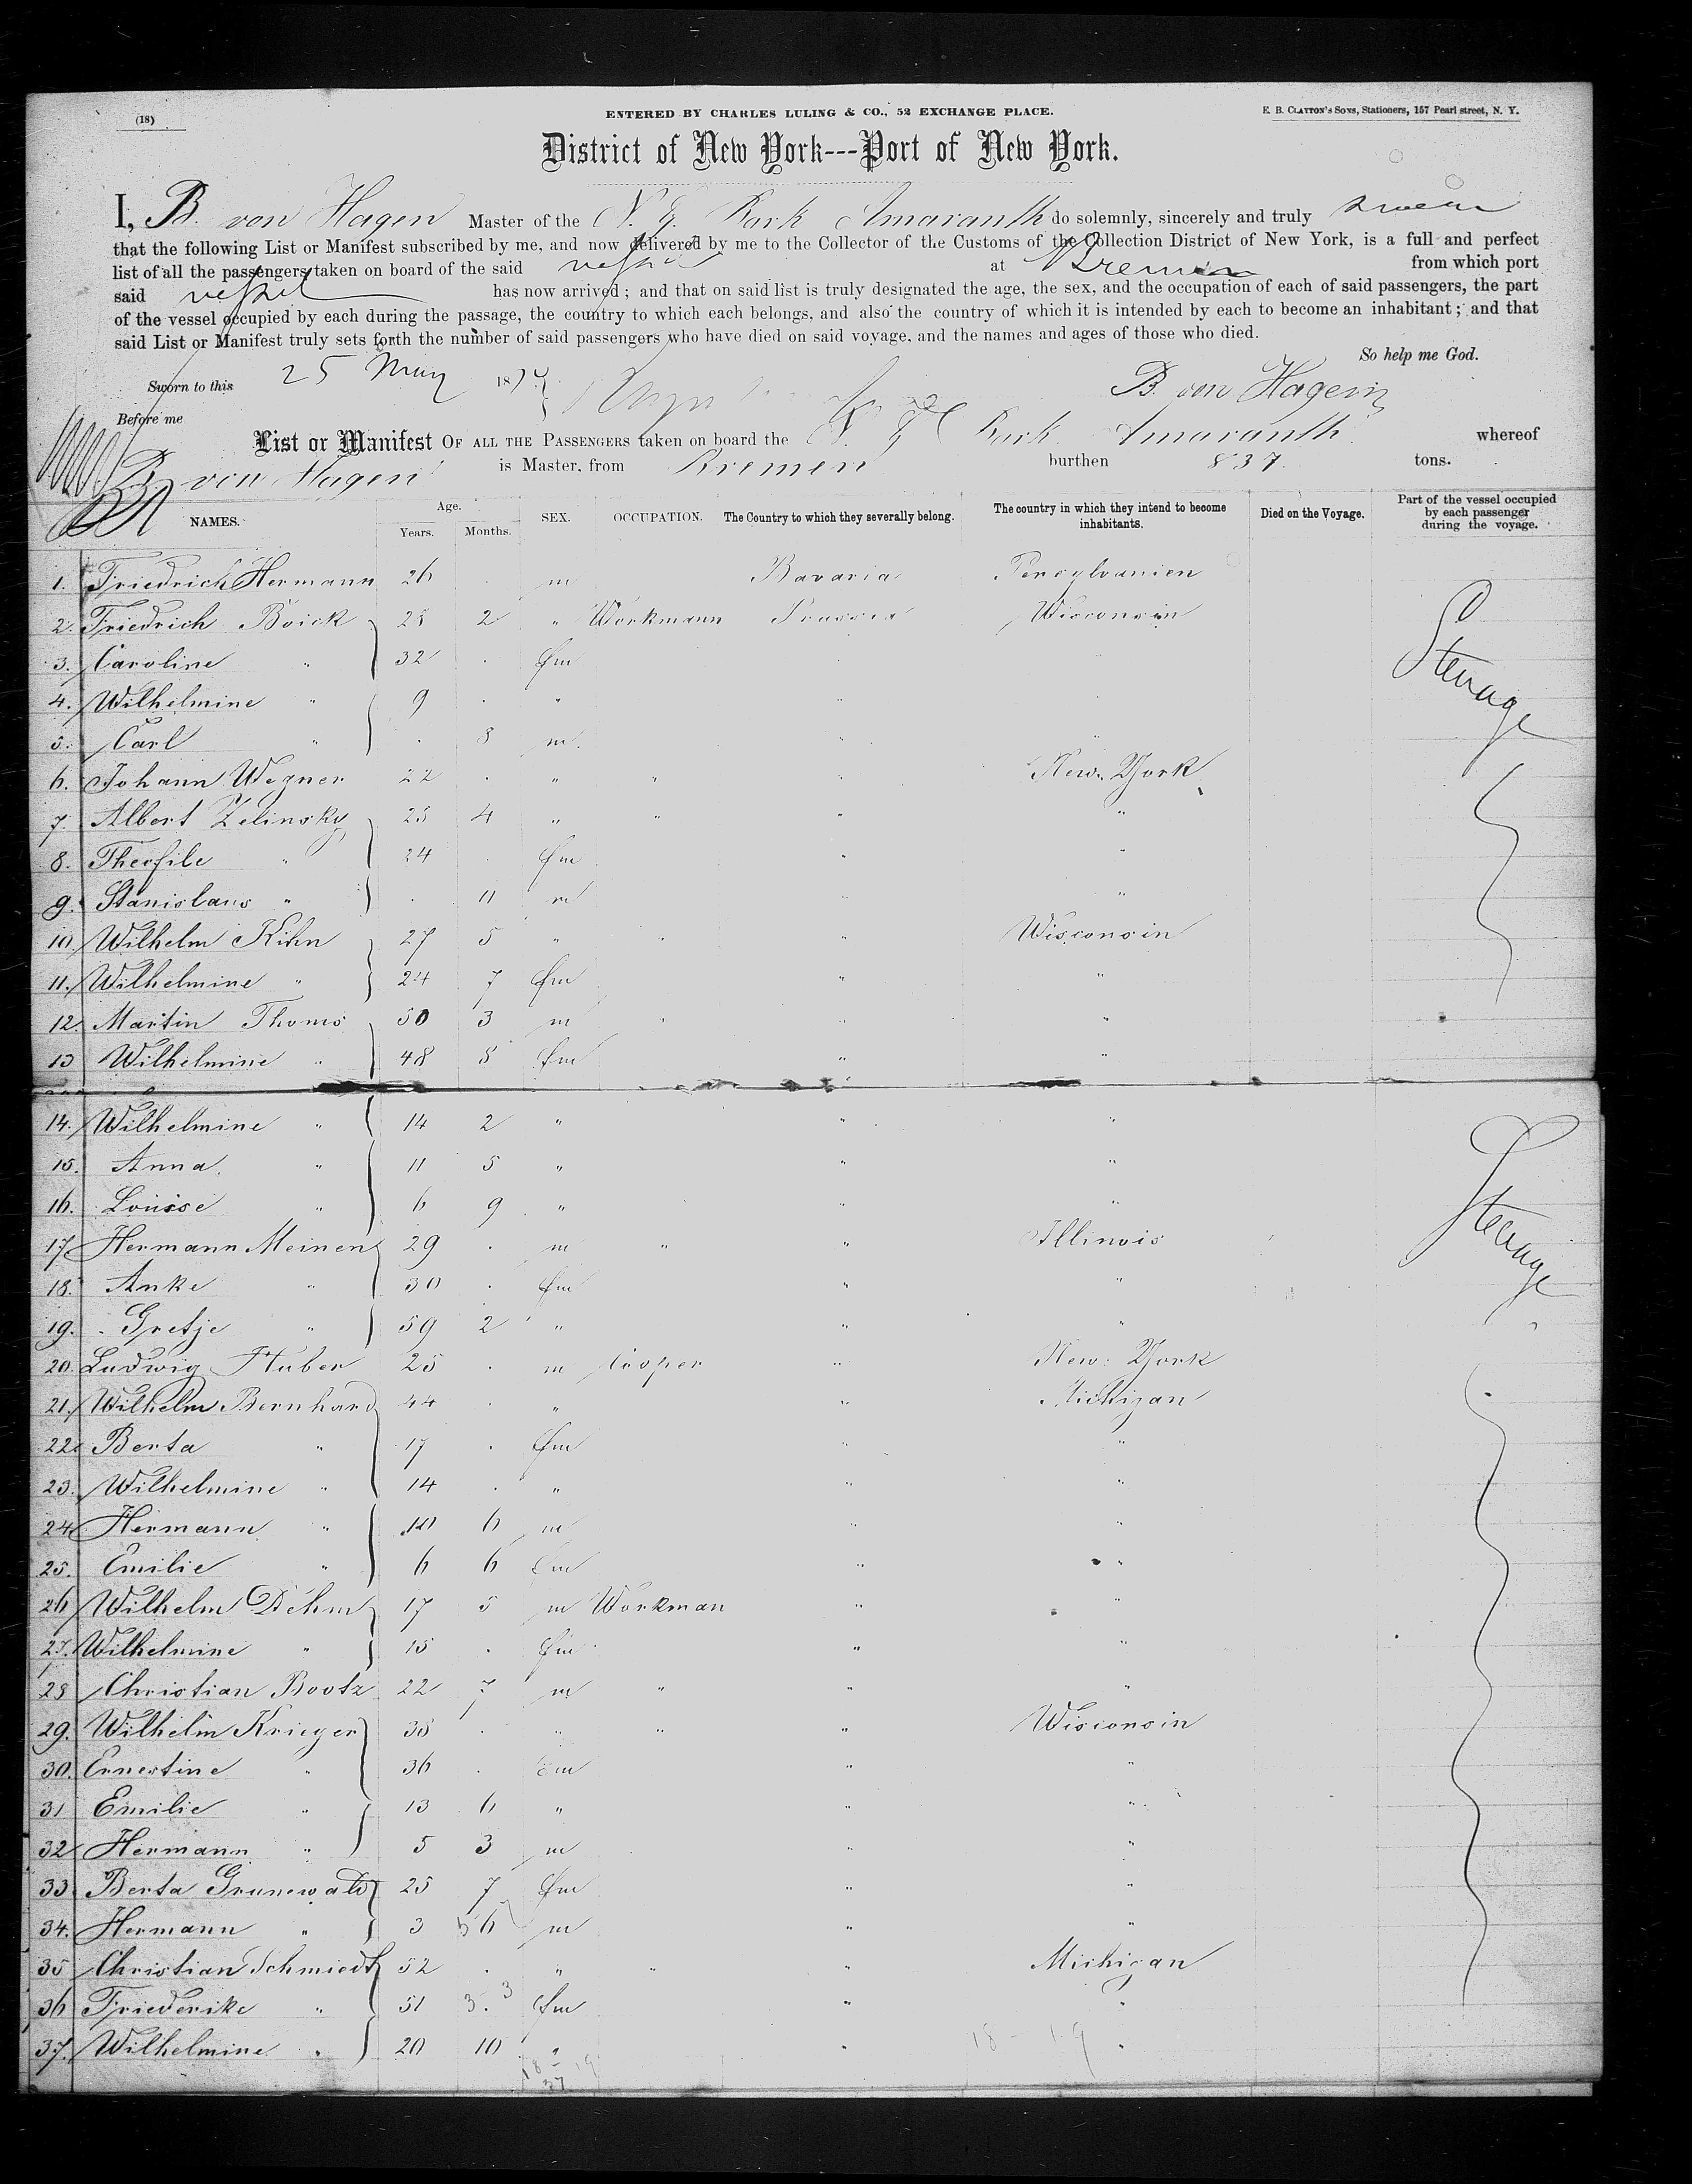 (18)
ENTERED BY CHARLES LULING & CO., 52 EXCHANGE PLACE.
E. B. CLAYTON'S SONS, Stationers, 157 Pearl street, N. Y.
District of New York---Port of New York.
I, B. von Hagen Master of the N. G. Bark Amaranth do solemnly, sincerely and truly swear
that the following List or Manifest subscribed by me, and now delivered by me to the Collector of the Customs of the Collection District of New York, is a full and perfect
list of all the passengers taken on board of the said vessel at Bremen from which port
said vessel has now arrived; and that on said list is truly designated the age, the sex, and the occupation of each of said passengers, the part
of the vessel occupied by each during the passage, the country to which each belongs, and also the country of which it is intended by each to become an inhabitant; and that
said List or Manifest truly sets forth the number of said passengers who have died on said voyage, and the names and ages of those who died.
So help me God.
Sworn to this 25 May 187
B. von Hagen
Before me
List or Manifest OF ALL THE PASSENGERS taken on board the N. G. Bark Amaranth whereof
B. von Hagen is Master, from Bremen burthen 837 tons.
NAMES. Age. Years. Months. SEX. OCCUPATION. The Country to which they severally belong. The country in which they intend to become inhabitants. Died on the Voyage. Part of the vessel occupied by each passenger during the voyage.
1. Friedrich Hermann 26 . m Bavaria Pensylvanien
2. Friedrich Boick 28 2 " Workmann Prussia Wisconsin
Steerage
3. Caroline " 32 . fm
4. Wilhelmine " 9 . " "
5. Carl " . 8 m. " "
6. Johann Wegner 22 . " " " New York
7. Albert Zelinsky 25 4 " " " "
8. Theofile " 24 . fm " "
9. Stanislaus " . 11 m " "
10. Wilhelm Kihn 27 5 " " " Wisconsin
11. Wilhelmine " 24 7 fm " "
12. Martin Thoms 50 3 m " " "
13 Wilhelmine " 48 8 fm " "
14. Wilhelmine " 14 2 " " "
15. Anna " 11 5 " " "
16. Louise " 6 9 " " "
Steerage
17. Hermann Meinen 29 . m " " Illinois
18. Anke " 30 . fm " "
19. Gretje " 59 2 " " "
20. Ludwig Huber 25 . m Cooper " New York
21. Wilhelm Bernhard 44 . " " Michigan
22. Berta " 17 . fm " "
23. Wilhelmine " 14 . " " "
24. Hermann " 10 6 m " "
25. Emilie " 6 6 fm " "
26 Wilhelm Dehm 17 5 m Workman " "
27. Wilhelmine " 15 . fm " "
28 Christian Bootz 22 7 m " " "
29. Wilhelm Krieger 38 . " " " Wisconsin
30. Ernestine " 36 . fm " "
31 Emilie " 13 6 " " "
32 Hermann " 5 3 m " "
33. Berta Grunewald 25 7 fm " "
34. Hermann " 3 6 m " "
35 Christian Schmiedt 52 . " " " Michigan
36 Friederike " 51 3. 3 fm " "
37. Wilhelmine " 20 10 " " "
18 - 19
18 - 19
37